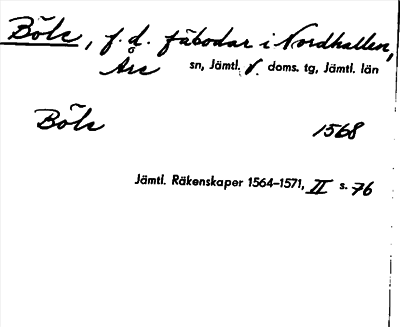 Böle, f.d. fäbodar i Nordhallen,
Åre sn, Jämtl. V. doms. tg, Jämtl. län
Böle 1568
Jämtl. Räkenskaper 1564–1571, II s. 76